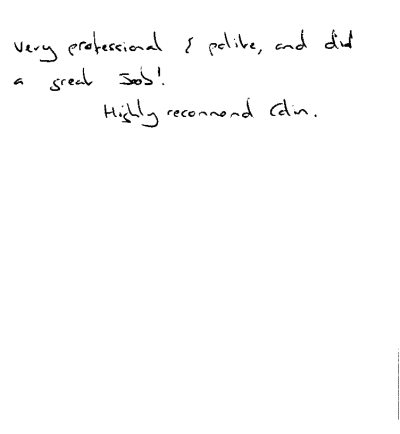 Very professional & polite, and did
a great Job!
Highly recommend Colin.